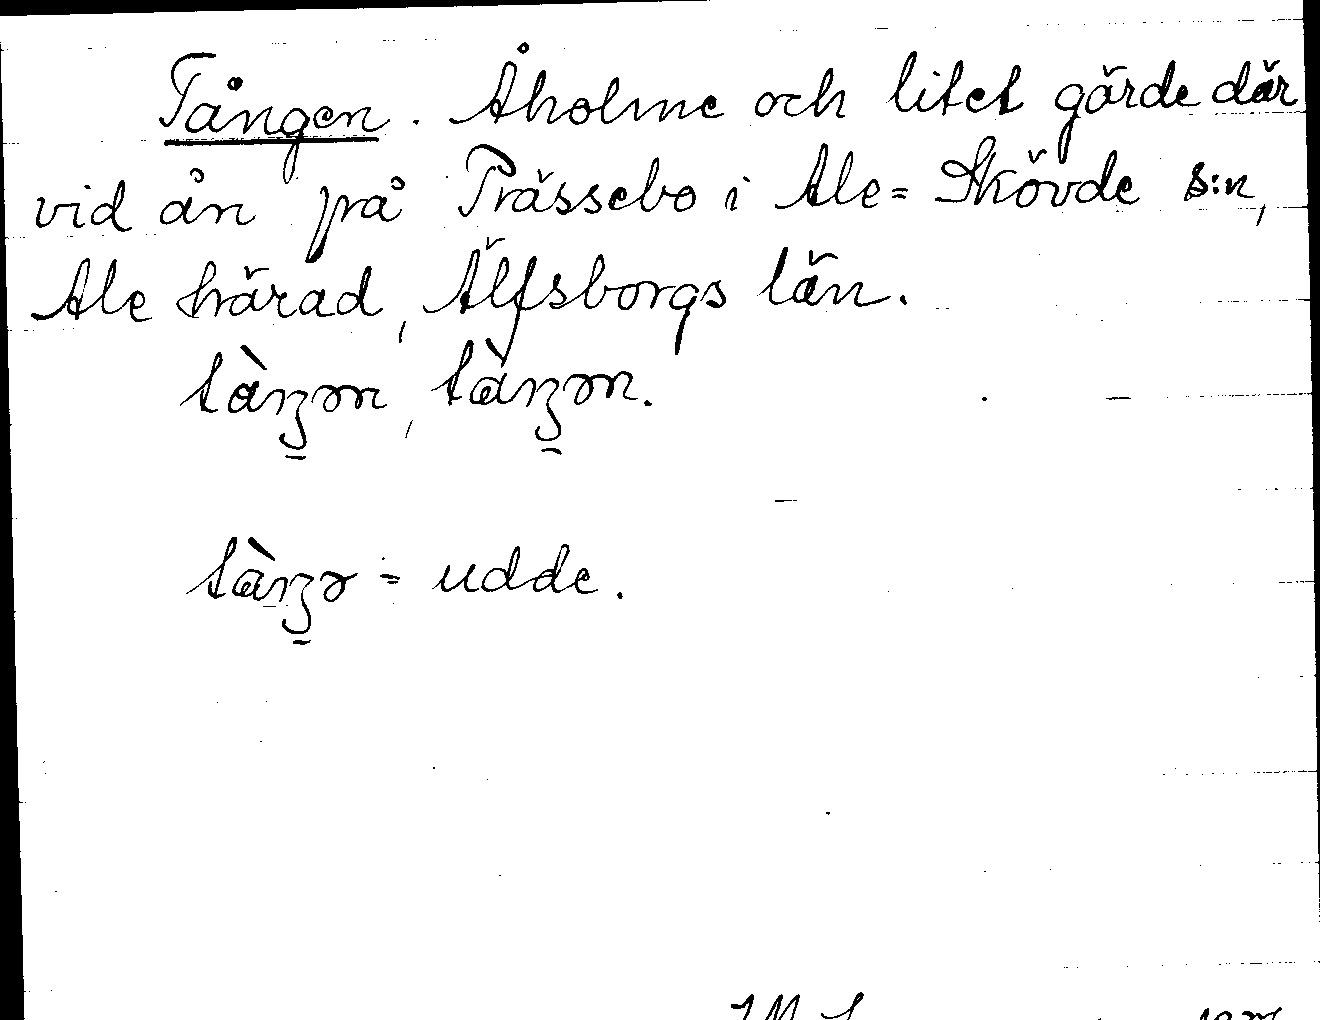 Tången. Åholme och litet gärde där
vid ån på Prässebo i Ale=Skövde s:n,
Ale härad, Älfsborgs län.
tàŋən, tàŋən.
tàŋə = udde.